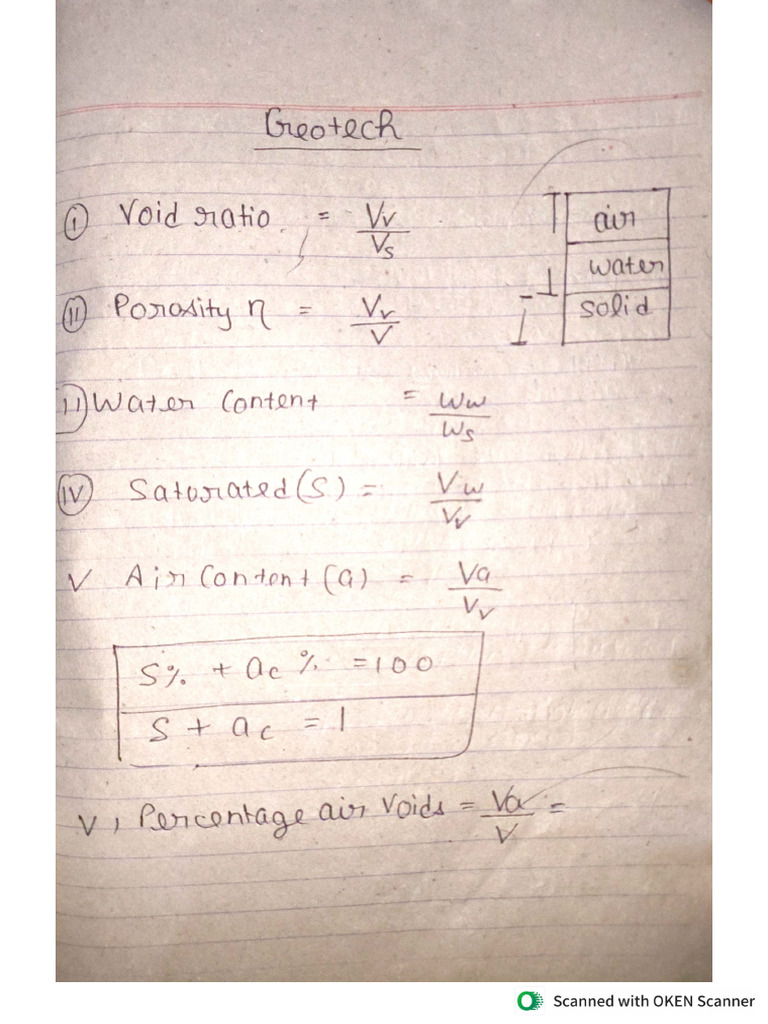 Geotech
(I) Void ratio = Vv/Vs
air
water
solid
(II) Porosity η = Vv/V
II) Water Content = Ww/Ws
(IV) Saturated (S) = Vw/Vv
V Air Content (a) = Va/Vv
S% + ac % = 100
S + ac = 1
V, Percentage air Voids = Va/V =
Scanned with OKEN Scanner